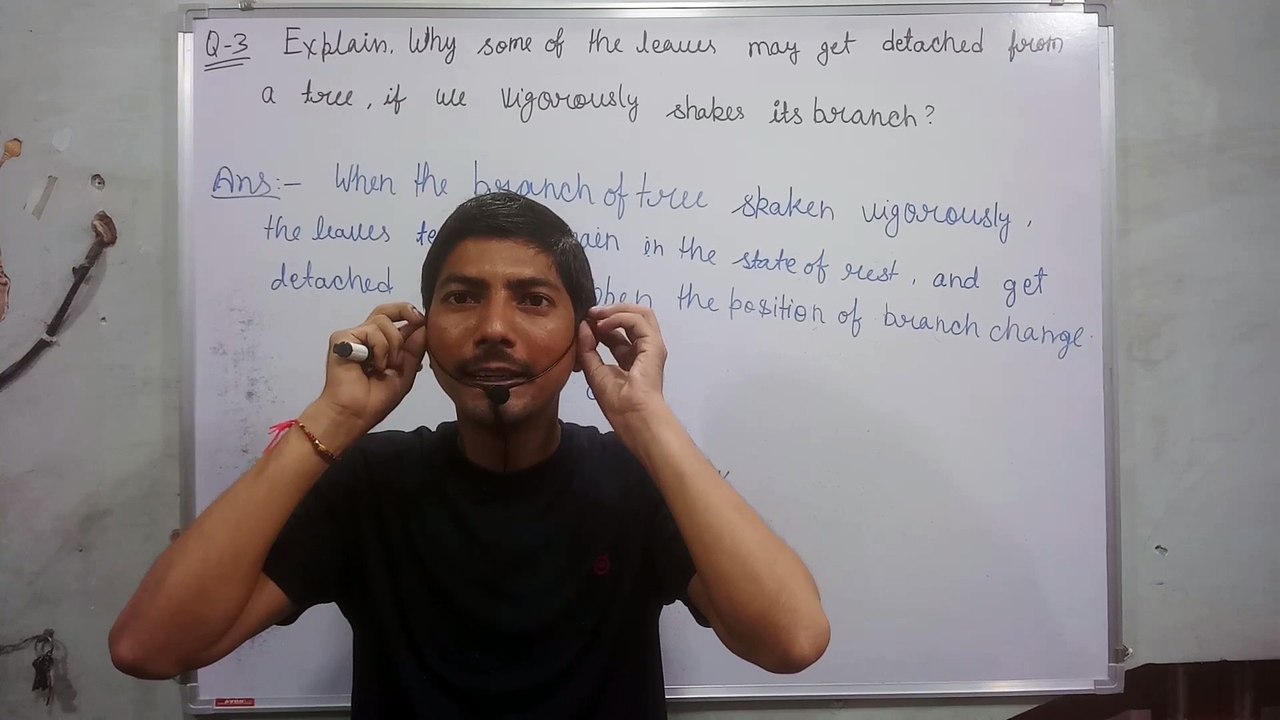 Q-3 Explain. Why some of the leaves may get detached from
a tree, if we vigorously shakes its branch?
Ans:- When the branch of tree skaken vigorously,
the leaves in the state of rest, and get
detached when the position of branch change.